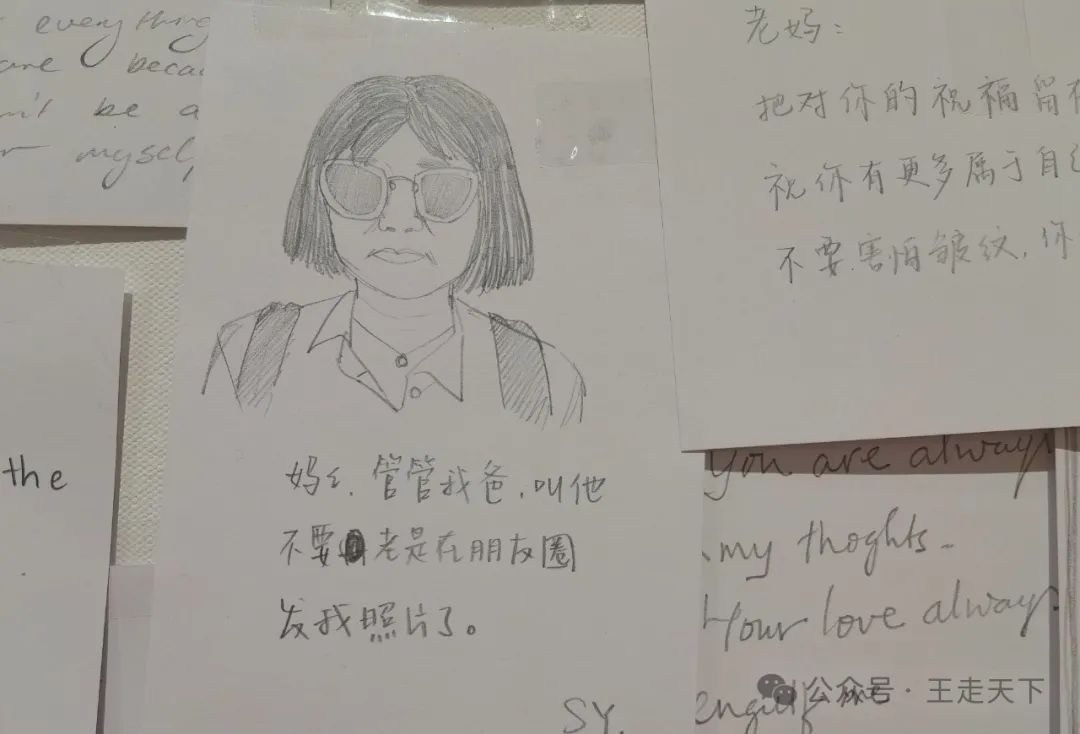 everything
are because
n't be a
myself,
the
妈妈，管管我爸，叫他
不要老是在朋友圈
发我照片了。
SY.
老妈：
把对你的祝福留在
祝你有更多属于自己
不要害怕皱纹，你
you are always
my thoghts.
Your love always
engulf me
公众号·王走天下